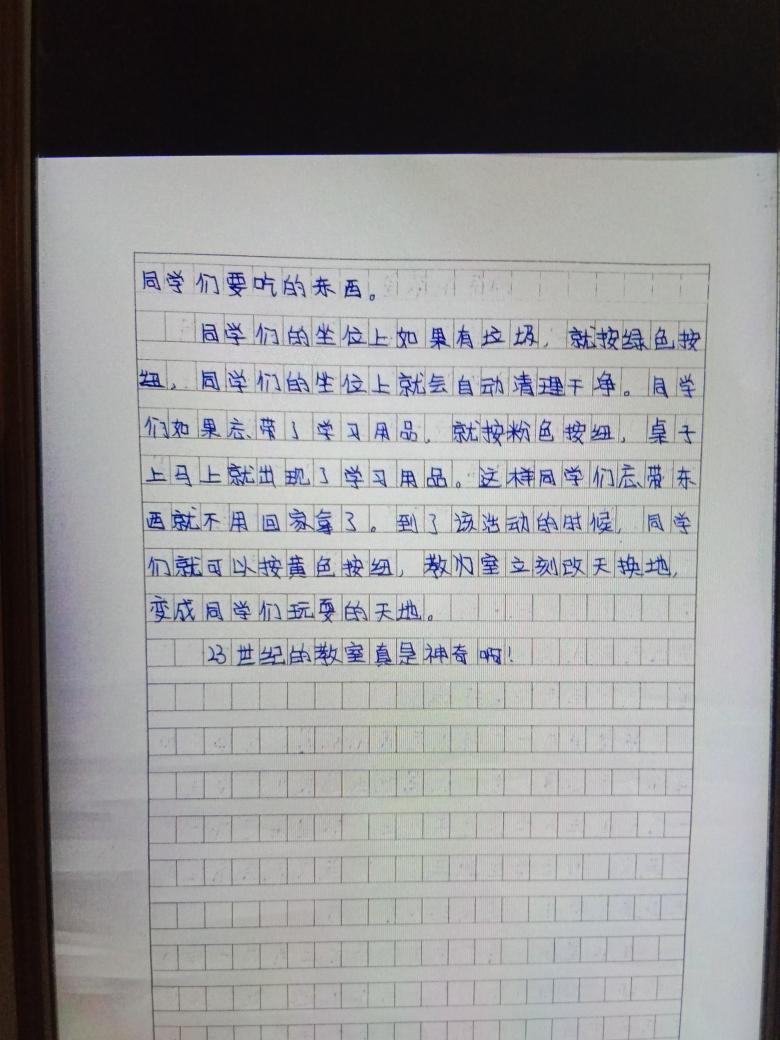 同学们要吃的东西。
同学们的坐位上如果有垃圾，就按绿色按
纽，同学们的坐位上就会自动清理干净。同学
们如果忘带了学习用品，就按粉色按纽，桌子
上马上就出现了学习用品。这样同学们忘带东
西就不用回家拿了。到了该活动的时候，同学
们就可以按黄色按纽，教室立刻改天换地，
变成同学们玩耍的天地。
23世纪的教室真是神奇啊！